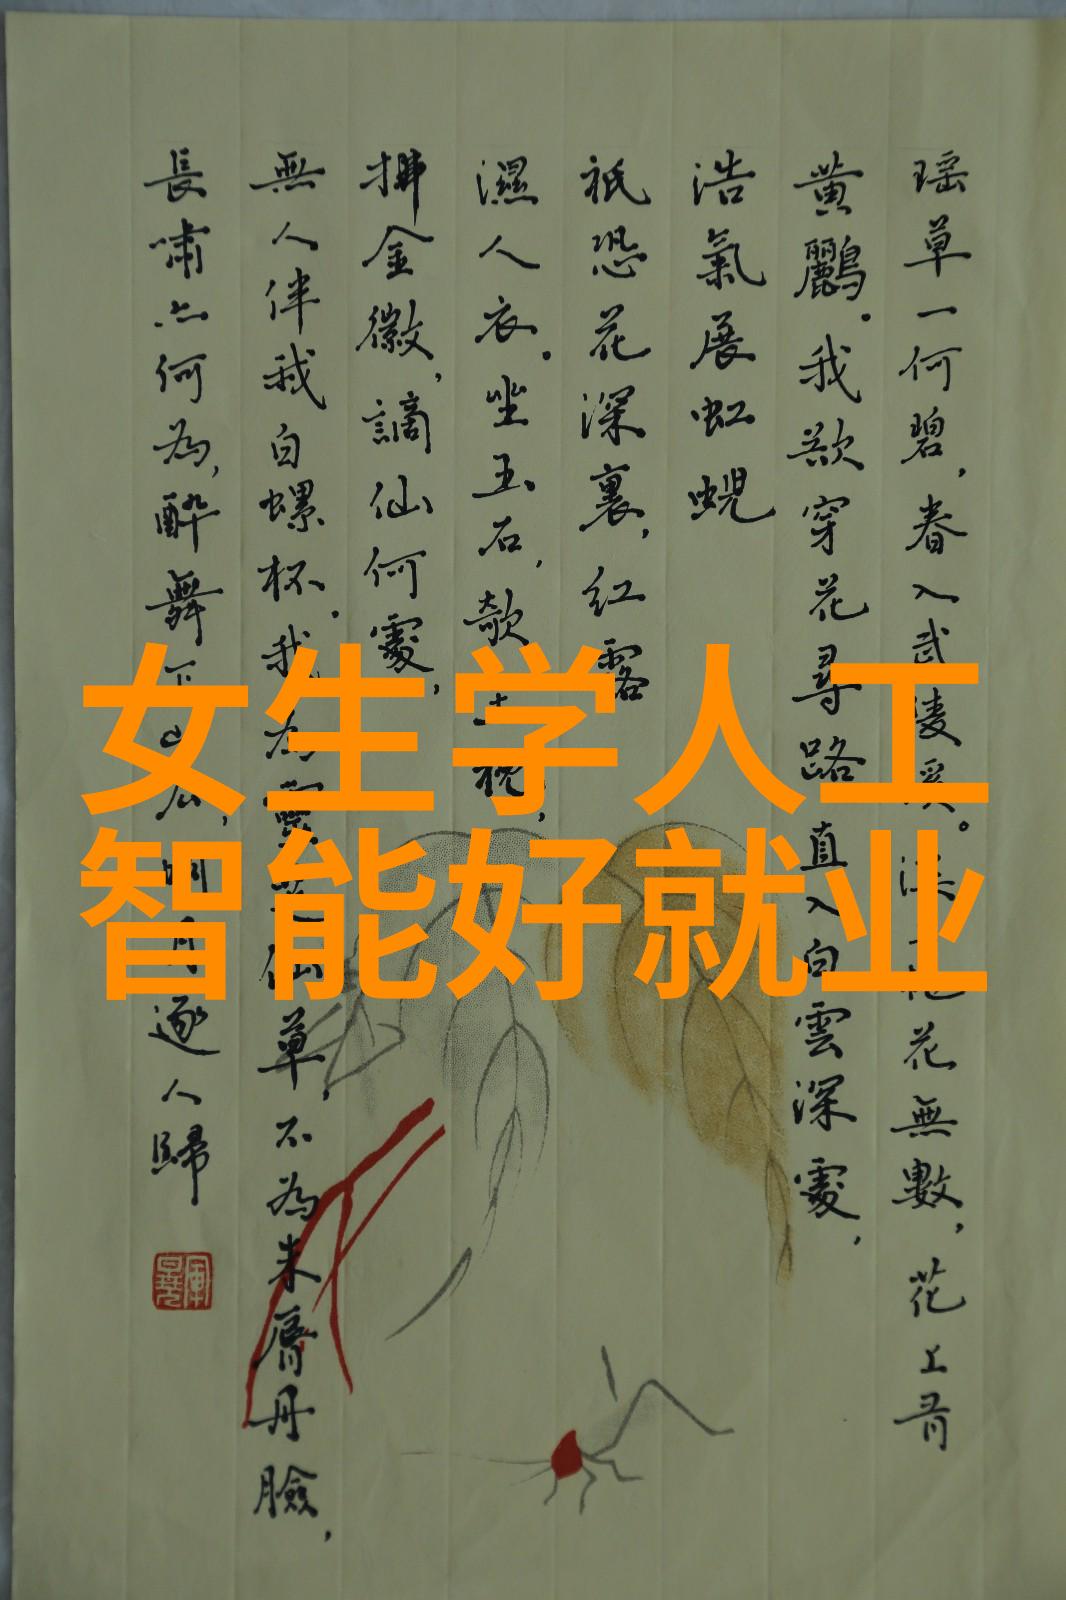 瑶草一何碧，春入武陵溪。溪花無數，花上有
黄鸝。我欲穿花尋路直入白雲深處，
浩氣展虹蜺
祇恐花深裏，紅露
濕人衣。坐玉石，欹枕，
拂金徽，謫仙何處，
無人伴我白螺杯。我為靈芝仙草，不為朱脣丹臉，
長嘯亦何為，醉舞下山，明月逐人歸
女生学人工
智能好就业